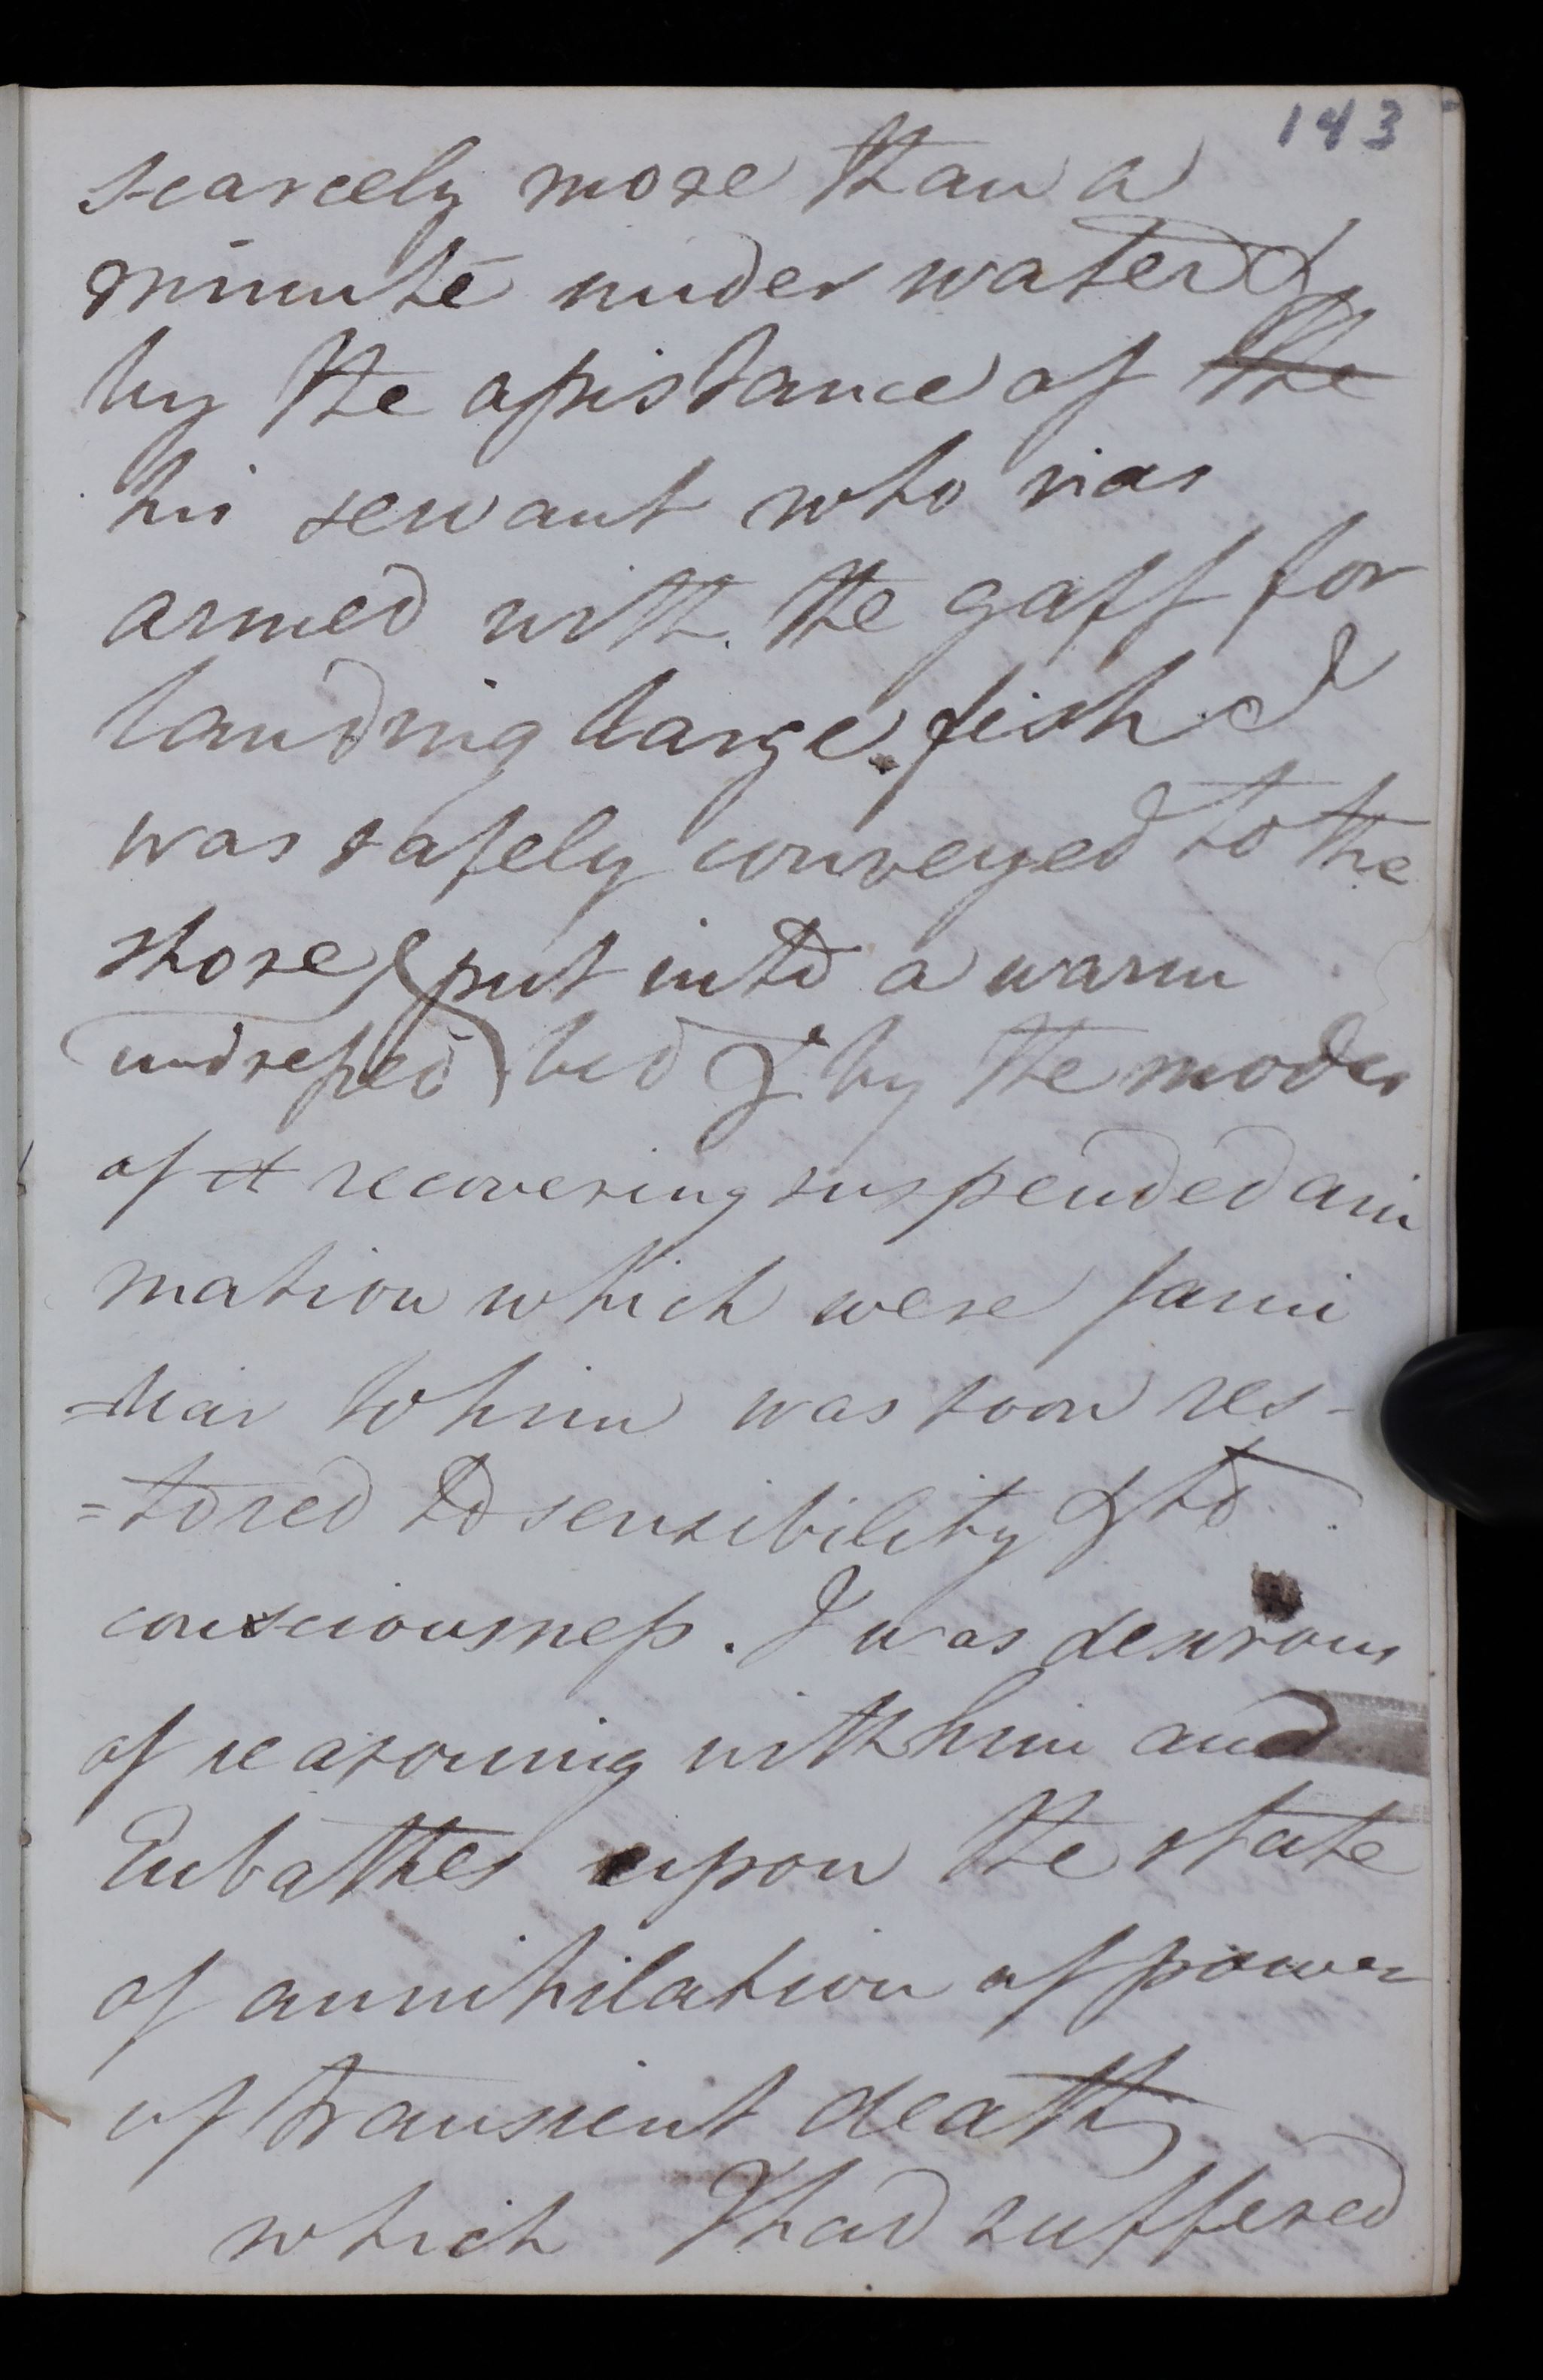 143
scarcely more than a
minute under water &
by the assistance of the
his servant who was
armed with the gaff for
landing large fish I
was safely conveyed to the
shore & put into a warm
undressed bed & by the modes
of it recovering suspended ani
mation which were fami
=liar to him was soon res-
=tored to sensibility & to
consciousness. I was desirous
of reasoning with him and
Eubathes upon the state
of annihilation of power
of transient death
which I had suffered